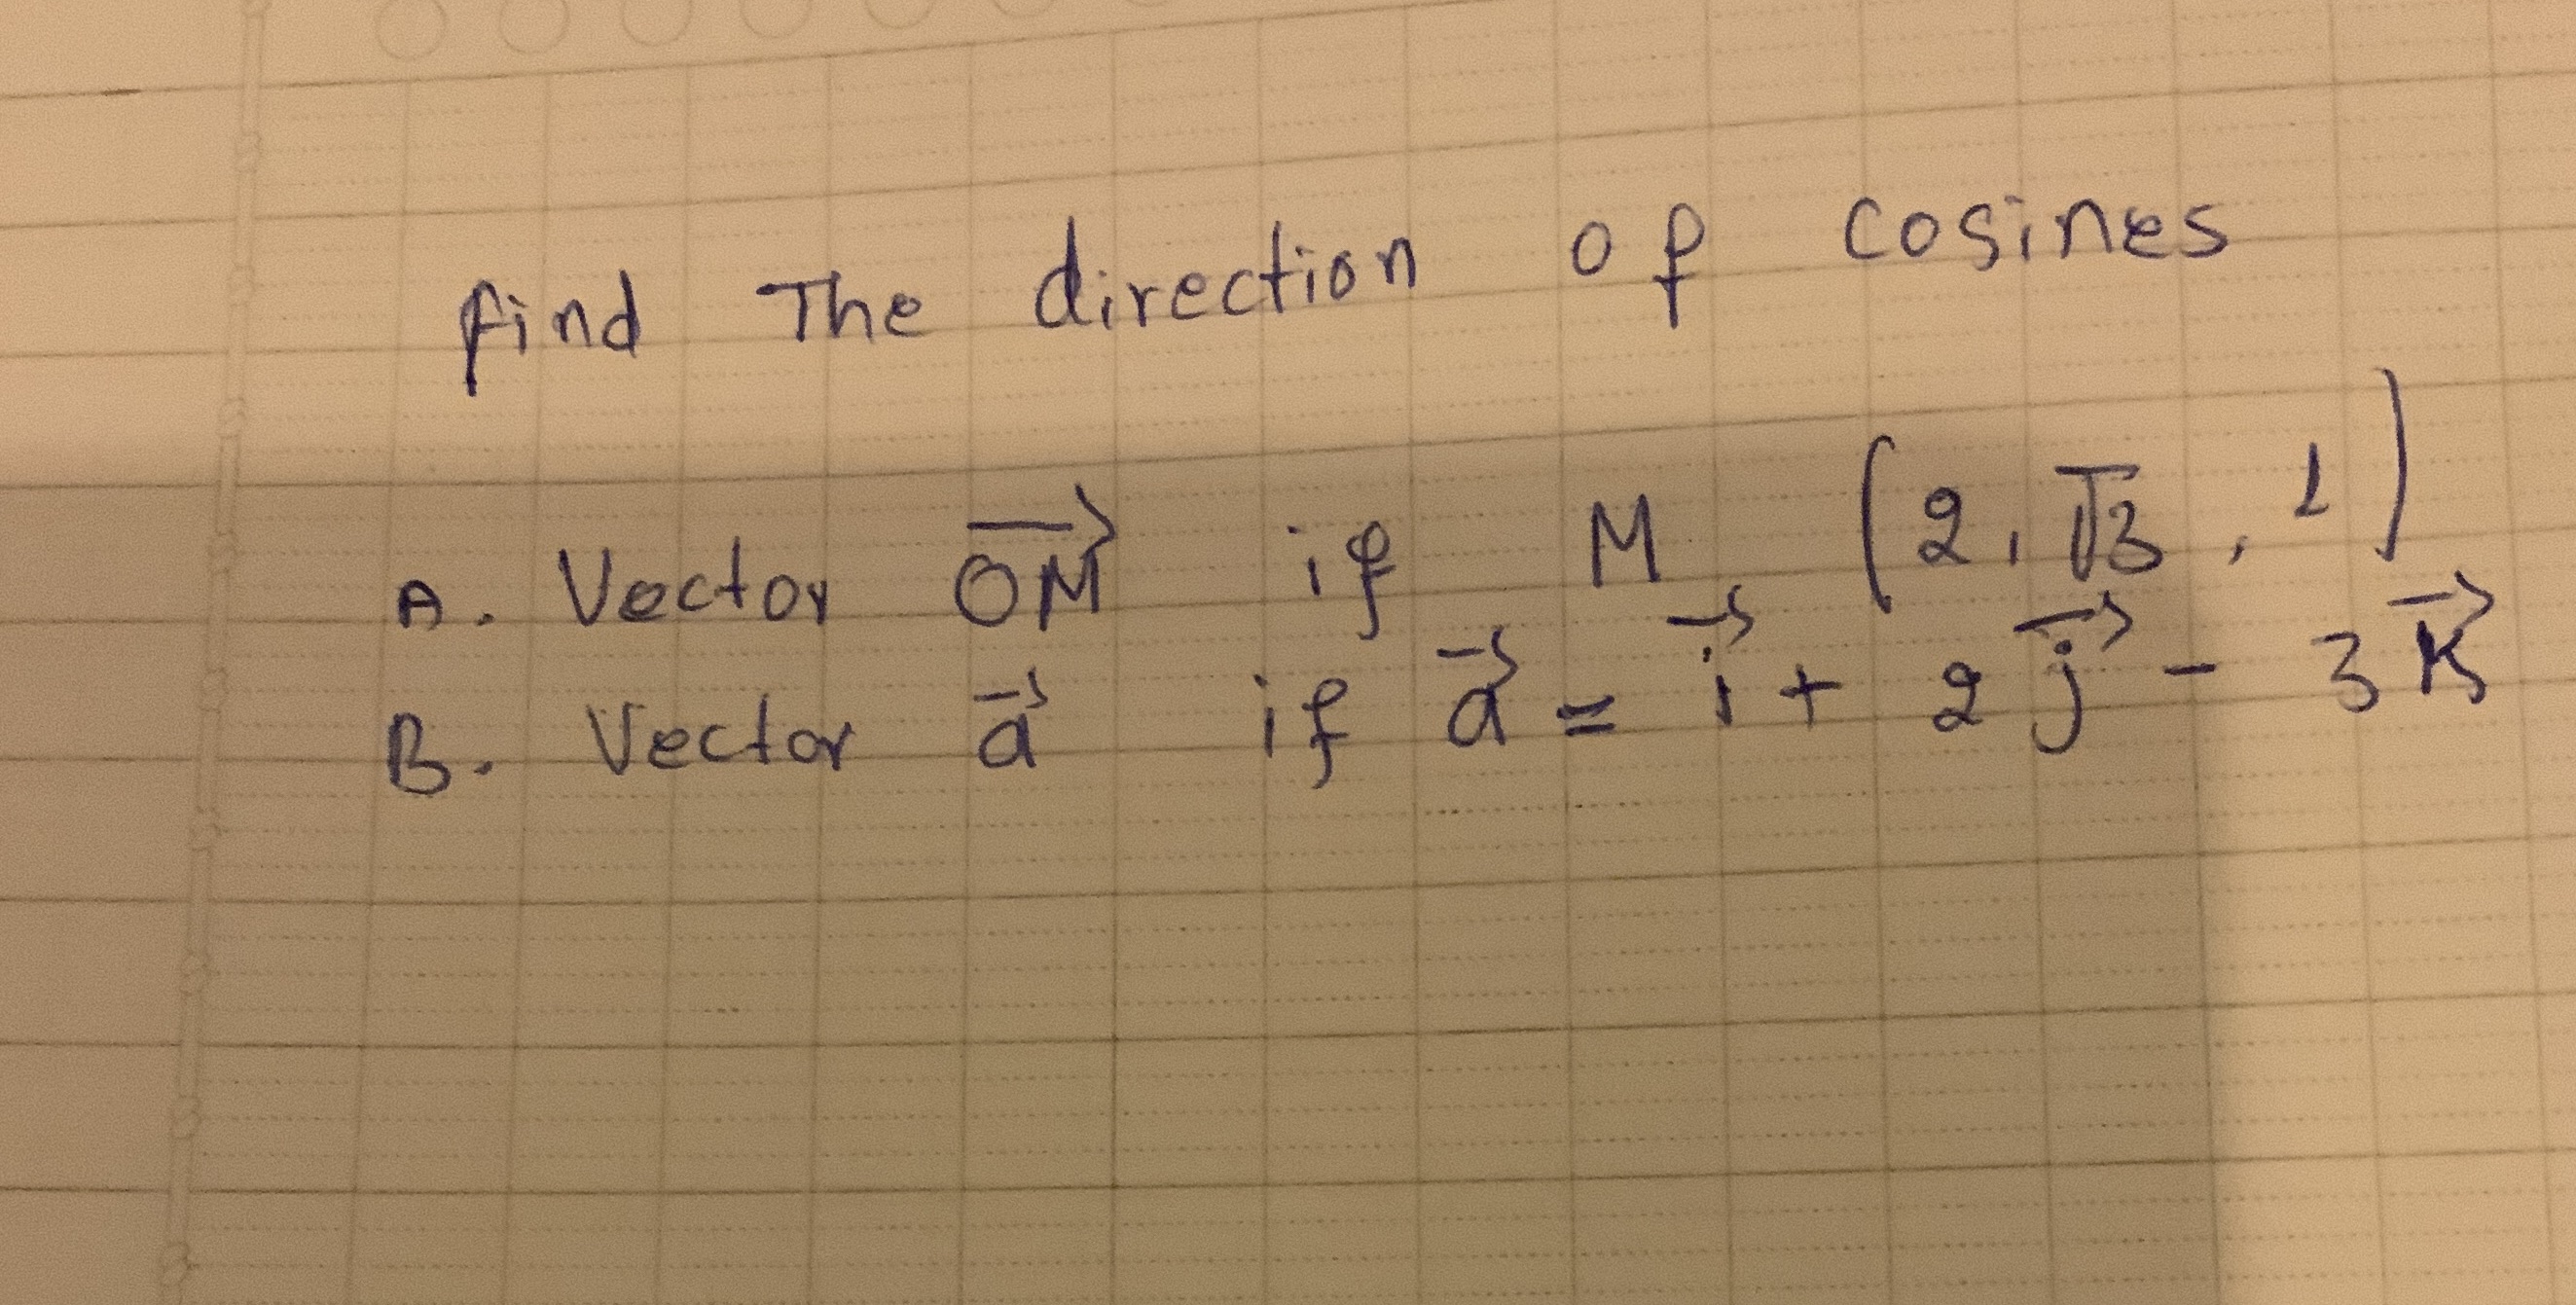 find The direction of cosines
A. Vector \overrightarrow{OM} if M (2, √3, 1)
B. Vector \vec{a} if \vec{a} = \vec{i} + 2\vec{j} - 3\vec{k}